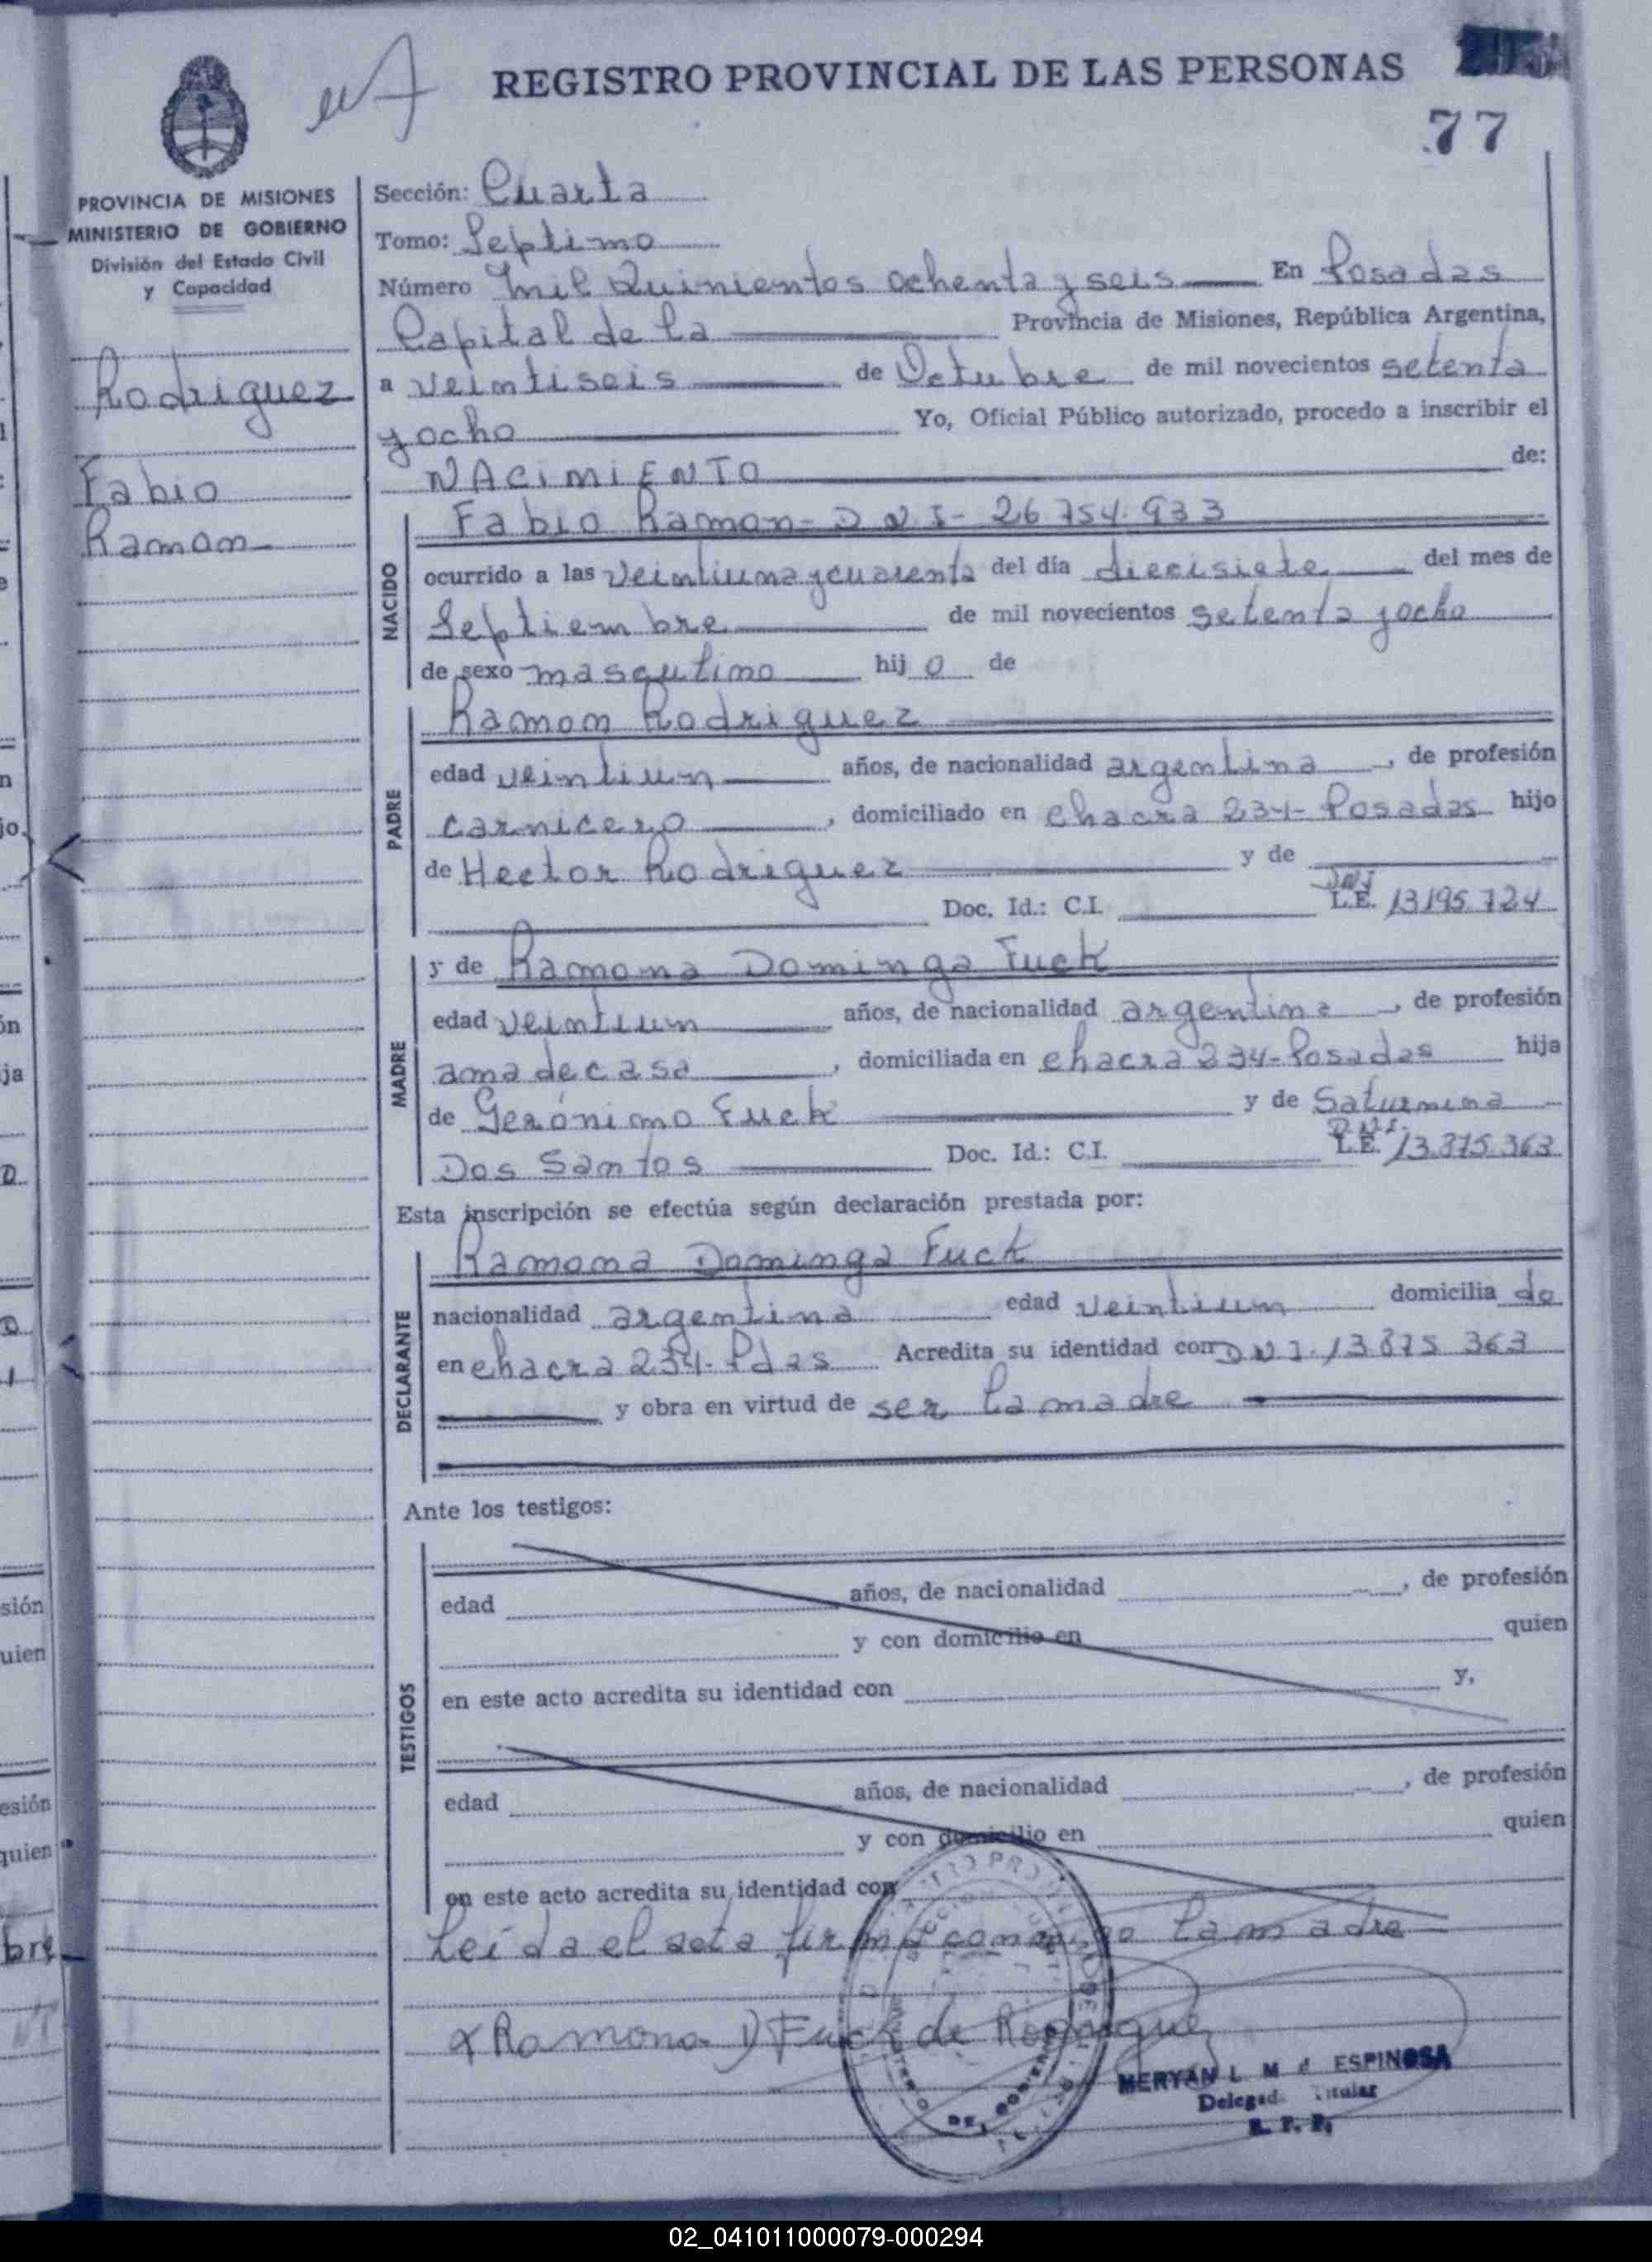 REGISTRO PROVINCIAL DE LAS PERSONAS
77
PROVINCIA DE MISIONES
MINISTERIO DE GOBIERNO
División del Estado Civil
y Capacidad
Rodriguez
Fabio
Ramon
Sección: Cuarta
Tomo: Septimo
Número Mil Quinientos ochenta y seis En Posadas
Capital de la Provincia de Misiones, República Argentina,
a veintiseis de Octubre de mil novecientos setenta
y ocho Yo, Oficial Público autorizado, procedo a inscribir el
NACIMIENTO de:
NACIDO
Fabio Ramon - D N I - 26 754.933
ocurrido a las veintiuna y cuarenta del día diecisiete del mes de
Septiembre de mil novecientos setenta y ocho
de sexo masculino hijo de
PADRE
Ramon Rodriguez
edad veintiun años, de nacionalidad argentina, de profesión
carnicero, domiciliado en chacra 234- Posadas hijo
de Hector Rodriguez y de
Doc. Id.: C.I. DNI L.E. 13195.724
MADRE
y de Ramona Dominga Fuck
edad veintiun años, de nacionalidad argentina, de profesión
ama de casa, domiciliada en chacra 234- Posadas hija
de Gerónimo Fuck y de Saturnina
Dos Santos Doc. Id.: C.I. D.N.I. L.E. 13.875.363
Esta inscripción se efectúa según declaración prestada por:
DECLARANTE
Ramona Dominga Fuck
nacionalidad argentina edad veintiun domiciliado
en chacra 234- Pdas Acredita su identidad con D N I. 13 875 363
y obra en virtud de ser la madre
Ante los testigos:
TESTIGOS
edad años, de nacionalidad , de profesión
y con domicilio en quien
en este acto acredita su identidad con y,
edad años, de nacionalidad , de profesión
y con domicilio en quien
en este acto acredita su identidad con
Leída el acta firma conmigo la madre
x Ramona D Fuck de Rodriguez
MERYAN L M d ESPINOSA
Delegad Titular
R. P. P.
02_041011000079-000294